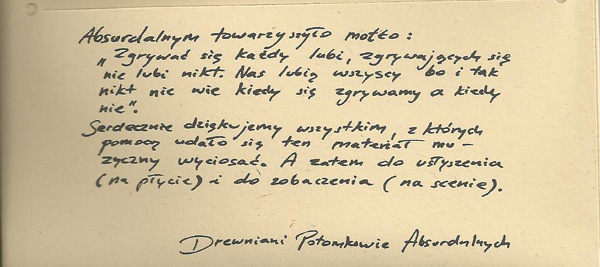 Absurdalnym towarzyszyło motto:
„Zgrywać się każdy lubi, zgrywających się
nie lubi nikt. Nas lubią wszyscy bo i tak
nikt nie wie kiedy się zgrywamy a kiedy
nie”.
Serdecznie dziękujemy wszystkim, z których
pomocą udało się ten materiał mu-
zyczny wyciosać. A zatem do usłyszenia
(na płycie) i do zobaczenia (na scenie).
Drewniani Potomkowie Absurdalnych